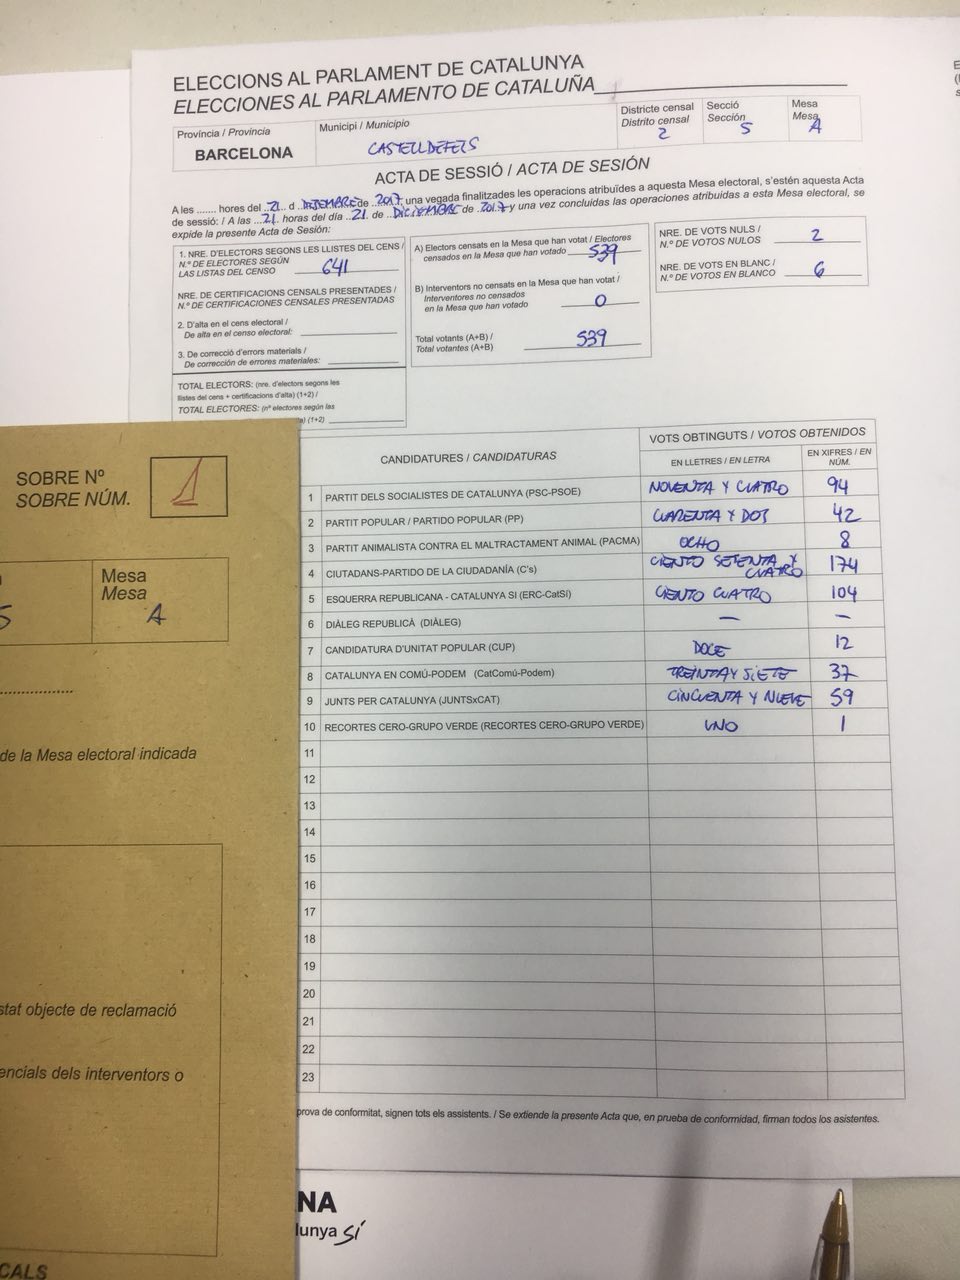 ELECCIONS AL PARLAMENT DE CATALUNYA
ELECCIONES AL PARLAMENTO DE CATALUÑA
Província / Provincia
BARCELONA
Municipi / Municipio
CASTELLDEFELS
Districte censal
Distrito censal
2
Secció
Sección
5
Mesa
Mesa
A
ACTA DE SESSIÓ / ACTA DE SESIÓN
A les ....... hores del ..21.. d DESEMBRE de ..2017 una vegada finalitzades les operacions atribuïdes a aquesta Mesa electoral, s'estén aquesta Acta
de sessió: / A las ...21. horas del día ..21. de ..DICIEMBRE de ..2017 y una vez concluidas las operaciones atribuidas a esta Mesa electoral, se
expide la presente Acta de Sesión:
1. NRE. D'ELECTORS SEGONS LES LLISTES DEL CENS /
N.º DE ELECTORES SEGÚN
LAS LISTAS DEL CENSO 641
NRE. DE CERTIFICACIONS CENSALS PRESENTADES /
N.º DE CERTIFICACIONES CENSALES PRESENTADAS
2. D'alta en el cens electoral /
De alta en el censo electoral:
3. De correcció d'errors materials /
De corrección de errores materiales:
TOTAL ELECTORS: (nre. d'electors segons les
llistes del cens + certificacions d'alta) (1+2) /
TOTAL ELECTORES: (nº electores según las
ta) (1+2)
A) Electors censats en la Mesa que han votat / Electores
censados en la Mesa que han votado 539
B) Interventors no censats en la Mesa que han votat /
Interventores no censados
en la Mesa que han votado 0
Total votants (A+B) /
Total votantes (A+B) 539
NRE. DE VOTS NULS /
N.º DE VOTOS NULOS 2
NRE. DE VOTS EN BLANC /
N.º DE VOTOS EN BLANCO 6
CANDIDATURES / CANDIDATURAS
VOTS OBTINGUTS / VOTOS OBTENIDOS
EN LLETRES / EN LETRA
EN XIFRES / EN
NÚM.
1 PARTIT DELS SOCIALISTES DE CATALUNYA (PSC-PSOE) NOVENTA Y CUATRO 94
2 PARTIT POPULAR / PARTIDO POPULAR (PP) CUARENTA Y DOS 42
3 PARTIT ANIMALISTA CONTRA EL MALTRACTAMENT ANIMAL (PACMA) OCHO 8
4 CIUTADANS-PARTIDO DE LA CIUDADANÍA (C's) CIENTO SETENTA Y CUATRO 174
5 ESQUERRA REPUBLICANA - CATALUNYA SI (ERC-CatSí) CIENTO CUATRO 104
6 DIÀLEG REPUBLICÀ (DIÀLEG) — —
7 CANDIDATURA D'UNITAT POPULAR (CUP) DOCE 12
8 CATALUNYA EN COMÚ-PODEM (CatComú-Podem) TREINTA Y SIETE 37
9 JUNTS PER CATALUNYA (JUNTSxCAT) CINCUENTA Y NUEVE 59
10 RECORTES CERO-GRUPO VERDE (RECORTES CERO-GRUPO VERDE) UNO 1
11
12
13
14
15
16
17
18
19
20
21
22
23
prova de conformitat, signen tots els assistents. / Se extiende la presente Acta que, en prueba de conformidad, firman todos los asistentes.
SOBRE Nº
SOBRE NÚM.
1
Mesa
Mesa
5
A
de la Mesa electoral indicada
stat objecte de reclamació
encials dels interventors o
CALS
NA
lunya Sí